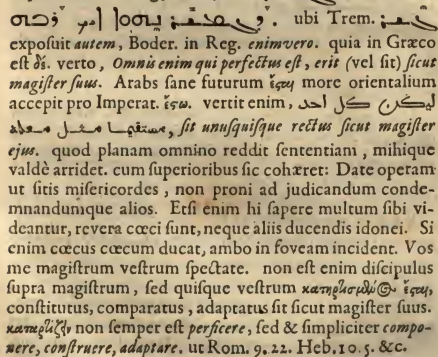 ubi Trem.
exposuit autem, Boder. in Reg. enimvero. quia in Græco
est δέ. verto, Omnis enim qui perfectus est, erit (vel sit) sicut
magister suus. Arabs sane futurum ἔσται more orientalium
accepit pro Imperat. ἔστω. vertit enim, ليكن كل احد
مستقيما مثل معلمه, sit unusquisque rectus sicut magister
ejus. quod planam omnino reddit sententiam, mihique
valdè arridet. cum superioribus sic cohæret: Date operam
ut sitis misericordes, non proni ad judicandum conde-
mnandumque alios. Etsi enim hi sapere multum sibi vi-
deantur, revera cœci sunt, neque aliis ducendis idonei. Si
enim cœcus cœcum ducat, ambo in foveam incident. Vos
me magistrum vestrum spectate. non est enim discipulus
supra magistrum, sed quisque vestrum κατηρτισμένος ἔσται,
constitutus, comparatus, adaptatus sit sicut magister suus.
καταρτίζειν non semper est perficere, sed & simpliciter compo-
nere, construere, adaptare. ut Rom. 9. 22. Heb. 10. 5. &c.